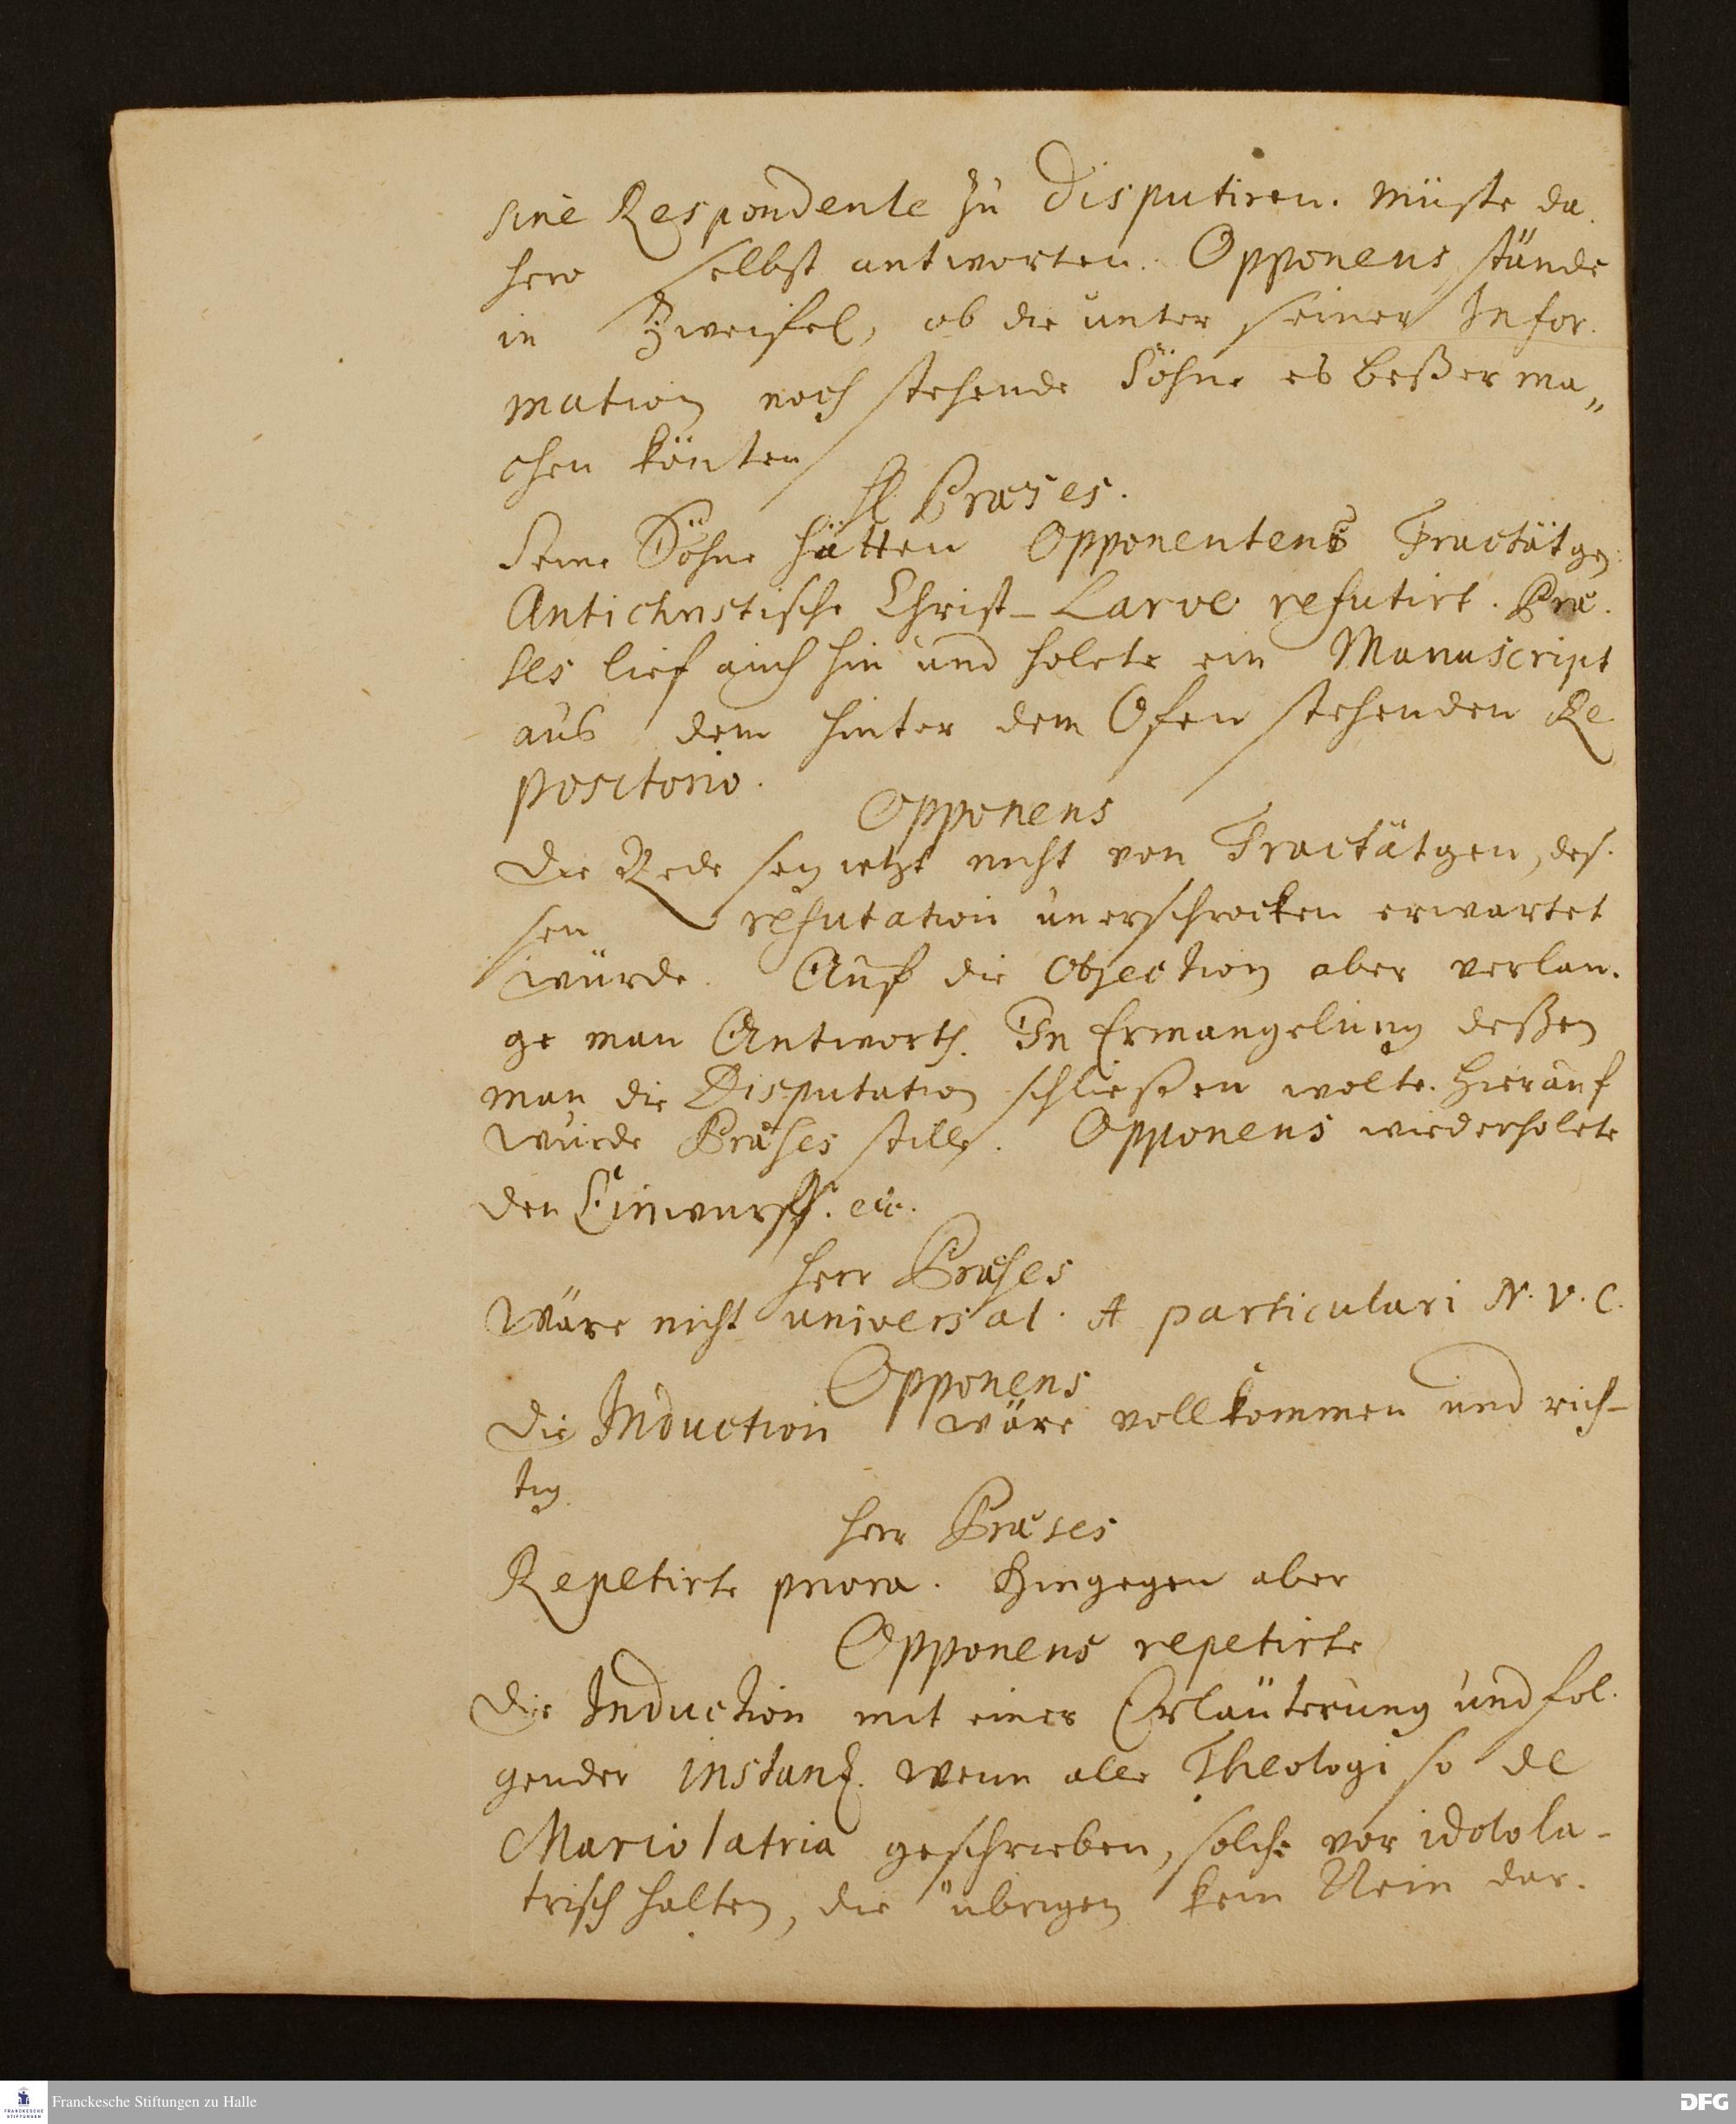 sine Respondente zu disputiren. Müste da.
hero selbst antworten. Opponens stünde
in Zweifel, ob die unter seiner Infor.
mation noch stehende Söhne es beßer ma„
chen könten
H. Præses.
Seine Söhne hätten Opponentens Tractätgen
Antichristische Christ-Larve refutirt. Præ.
ses lief auch hin und holete ein Manuscript
aus dem hinter dem Ofen stehenden Re
positorio.
Opponens
Die Rede sey ietzt nicht von Tractätgen, des.
sen refutation unerschrocken erwartet
würde. Auf die Objection aber verlan.
ge man Antworth. In Ermangelung deßen
man die Disputation schließen wolte. Hierauf
wurde Præses stille. Opponens wiederholete
den Einwurff. etc.
Herr Præses
Wäre nicht universal. A particulari N. V. C.
Opponens
Die Induction wäre vollkommen und rich-
tig.
Herr Præses
Repetirte priora. Hingegen aber
Opponens repetirte
Die Induction mit einer Erläuterung und fol.
gender instanz. Wenn alle Theologi so de
Mariolatria geschrieben, solche vor idolola-
trisch halten, die übrigen kein Nein dar.
Franckesche Stiftungen zu Halle
FRANCKESCHE
STIFTUNGEN
DFG